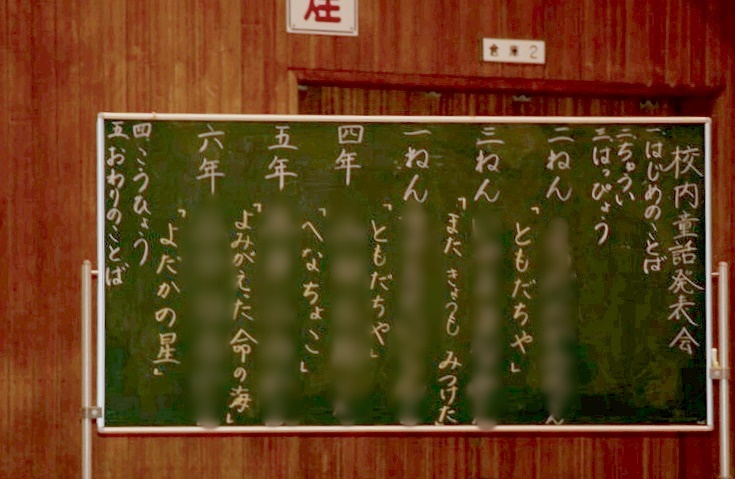 倉庫2
校内童話発表会
一はじめのことば
二ちゅうい
三はっぴょう
二ねん
「ともだちや」
三ねん
「またきょうも みつけた
一ねん
「ともだちや」
四年
「へなちょこ」
五年
「よみがえった命の海」
六年
「よだかの星」
四こうひょう
五おわりのことば